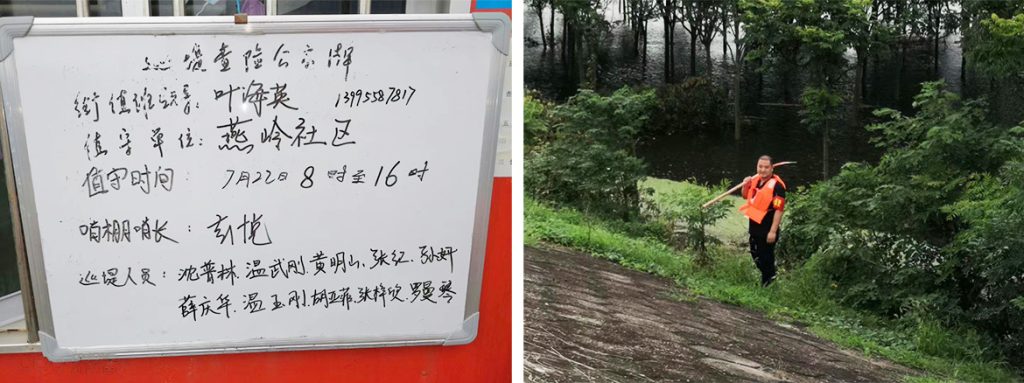 巡堤查险公示牌
街值班领导：叶海英 13995587817
值守单位：燕岭社区
值守时间：7月22日8时至16时
哨棚哨长：玄悦
巡堤人员：沈普林、温武刚、黄明山、张红、孙妍
薛庆年、温玉刚、胡亚菲、张梓欣、罗曼琴